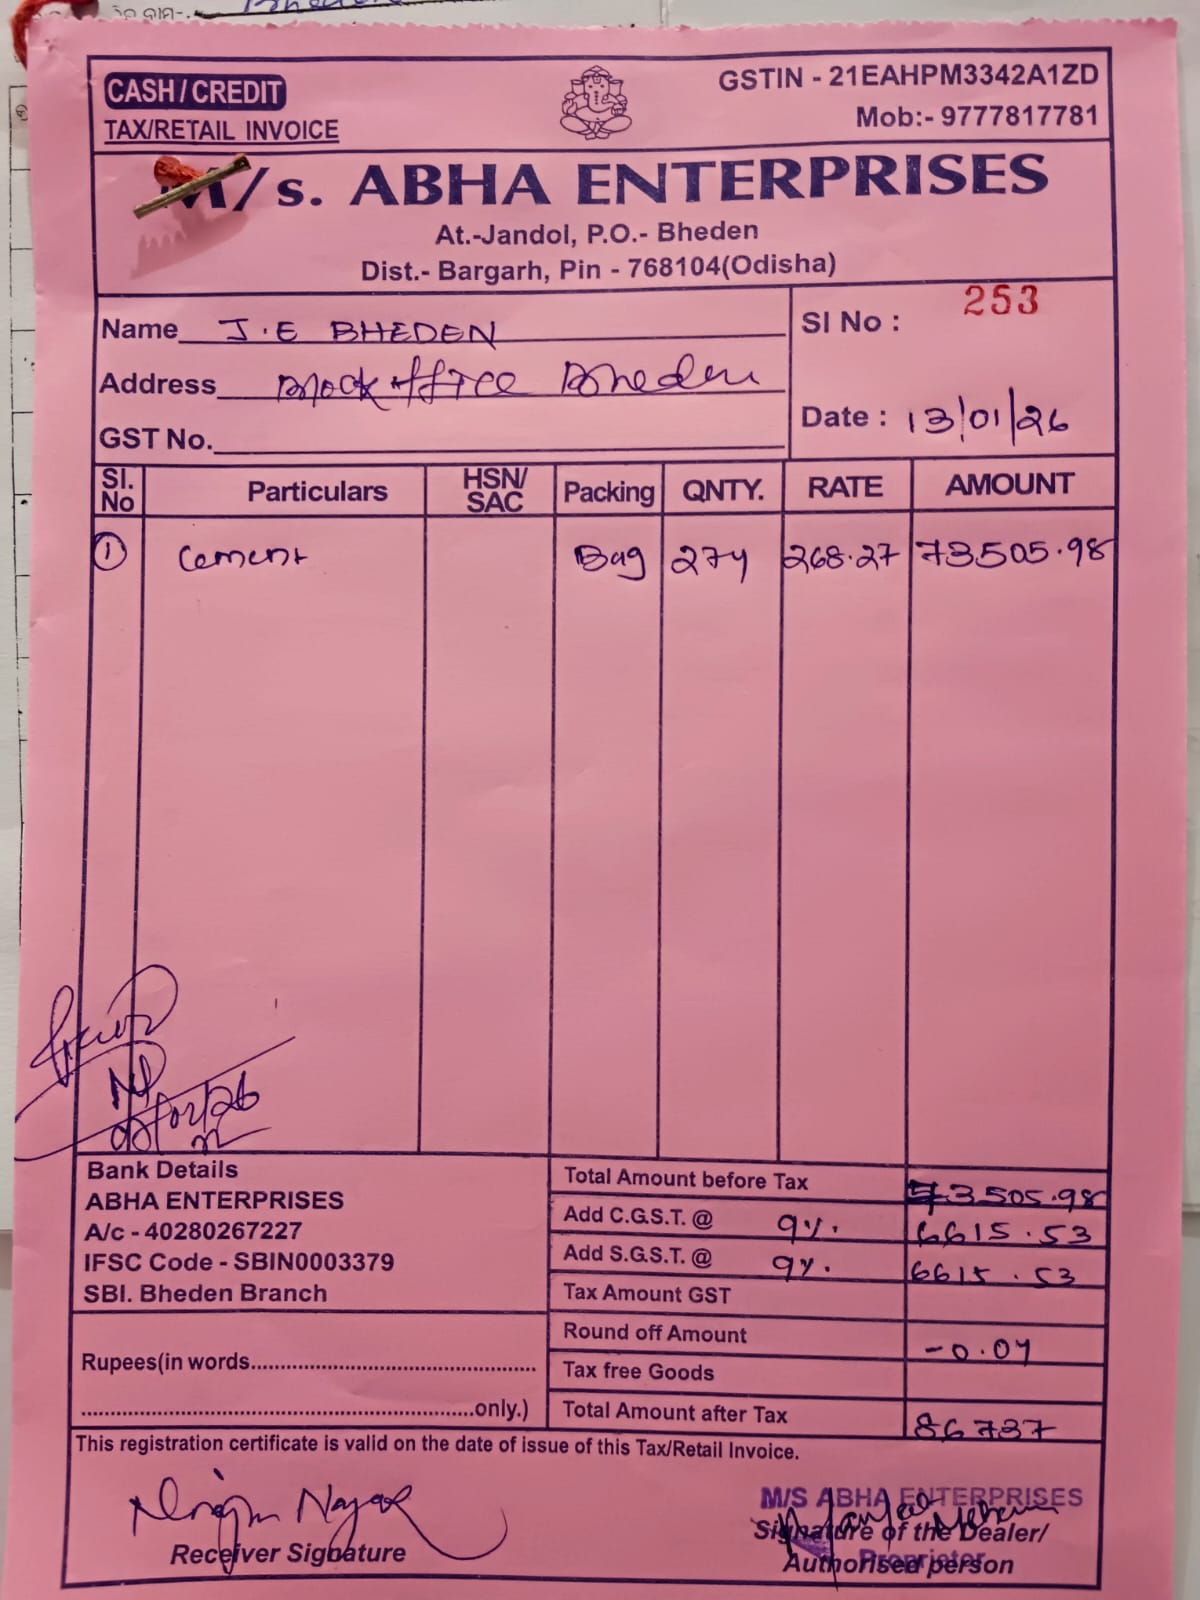 CASH / CREDIT
TAX/RETAIL INVOICE
GSTIN - 21EAHPM3342A1ZD
Mob:- 9777817781
M/s. ABHA ENTERPRISES
At.-Jandol, P.O.- Bheden
Dist.- Bargarh, Pin - 768104(Odisha)
Name J.E BHEDEN
Address Block office Bheden
GST No.
SI No : 253
Date : 13/01/26
SI. No Particulars HSN/ SAC Packing QNTY. RATE AMOUNT
1 Cement Bag 274 268.27 73505.98
Bank Details
ABHA ENTERPRISES
A/c - 40280267227
IFSC Code - SBIN0003379
SBI. Bheden Branch
Rupees(in words
only.)
Total Amount before Tax 73505.98
Add C.G.S.T. @ 9%. 6615.53
Add S.G.S.T. @ 9%. 6615.53
Tax Amount GST
Round off Amount -0.04
Tax free Goods
Total Amount after Tax 86737
This registration certificate is valid on the date of issue of this Tax/Retail Invoice.
Receiver Signature
M/S ABHA ENTERPRISES
Signature of the Dealer/
Authorised person
Proprietor